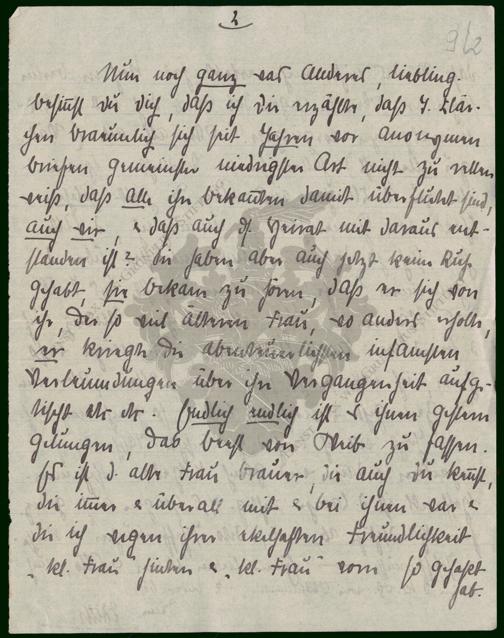 2
9/2
Nun noch ganz was Anderes, Liebling.
Besinnst du dich, daß ich dir erzählte, daß
chen Braeunlich sich seit Jahren vor anonymen
Briefen gemeinster niedrigster Art nicht zu retten
weiß, daß alle ihre Bekannten damit überflutet sind,
auch wir, & daß auch d. Heirat mit daraus ent-
standen ist? Sie haben aber auch jetzt keine Ruhe
gehabt, sie bekam zu hören, daß er sich von
ihr, der so viel älteren Frau, wo anders erholte,
er kriegte die abenteuerlichsten infamsten
Verleumdungen über ihre Vergangenheit aufge-
tischt etc etc. Endlich endlich ist es ihnen gestern
gelungen, das Beest von Weib zu fassen.
Es ist d. alte Frau Brauer, die auch du kennst,
die immer & überall mit & bei ihnen war &
die ich wegen ihrer ekelhaften Freundlichkeit
"kl. Frau hinten & "kl. Frau" vorn so gehaßt
hab.